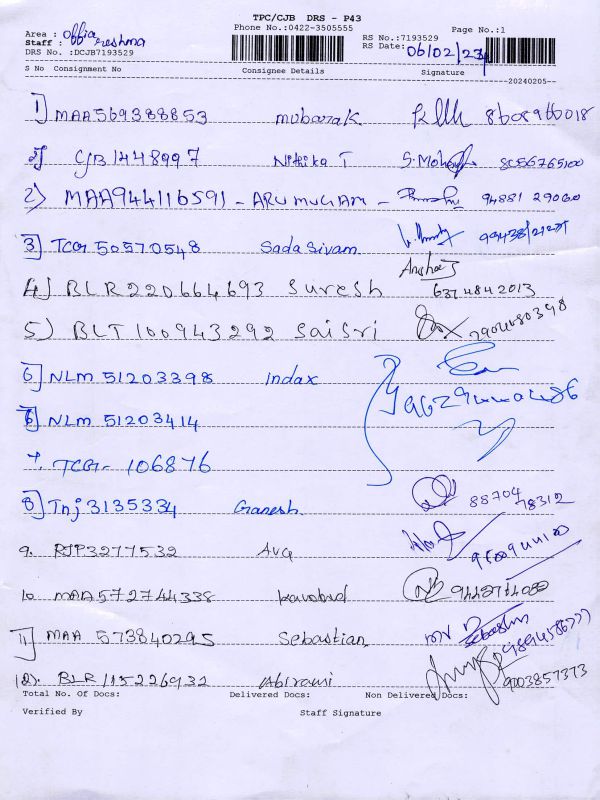 TPC/CJB DRS - P43
Phone No.:0422-3505555
Page No.:1
Area : Office
Staff : Greeshma
DRS No.:DCJB7193529
RS No.:7193529
RS Date: 06/02/23
S No Consignment No Consignee Details Signature
20240205
1) MAA569388853 mubarak
2) CJB1448997 Nithika T S.Mohan 8056765100
2) MAA944116591 - ARUMUGAM - 94881 29060
3) TCG 50570548 Sadasivam
4) BLR220664693 Suresh 6374842013
5) BLT100943292 Saisri
6) NLM 51203398 Indax
6) NLM 51203414
7. TCG- 106876
8) Tnj3135334 Ganesh 88704 78312
9. RJP3277532
10 MAA572744338
11) MAA 573840295 Sebastian
12). BLR115226932 Abirami 9003857373
Total No. Of Docs: Delivered Docs: Non Delivered Docs:
Verified By Staff Signature